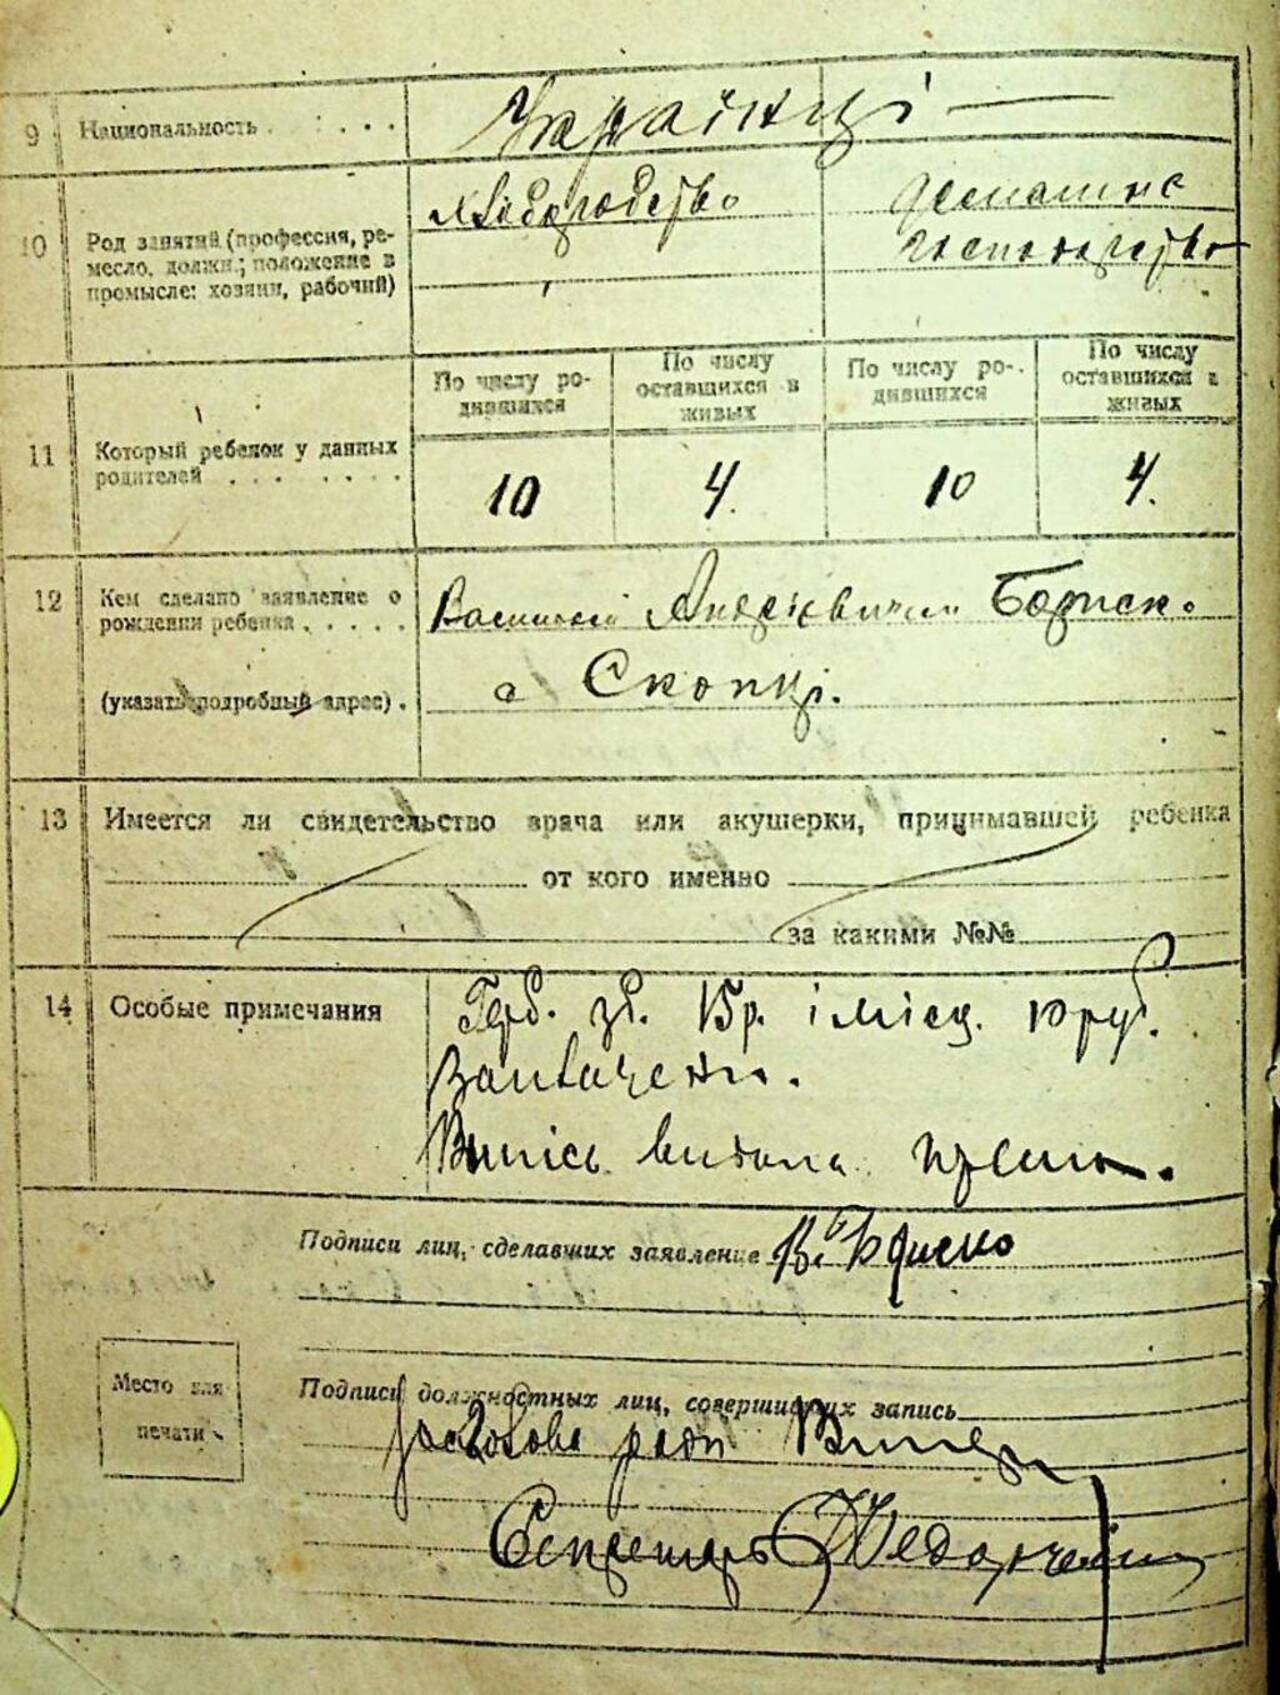 9 Национальность . . . . .
Українці —
10 Род занятий (профессия, ре-
месло, должн.; положение в
промысле: хозяин, рабочий)
хліборобство
домашнє
господарство
11 Который ребенок у данных
родителей . . . . . . .
По числу ро-
дившихся
По числу
оставшихся в
живых
По числу ро-
дившихся
По числу
оставшихся в
живых
10 4. 10 4.
12 Кем сделано заявление о
рождении ребенка . . . . .
(указать подробный адрес) .
Бориско
с Скопці.
13 Имеется ли свидетельство врача или акушерки, принимавшей ребенка
от кого именно
за какими №№
14 Особые примечания
Герб. зб. 15р. і місц.
Випись видана
Подписи лиц, сделавших заявление В. Бориско
Место для
печати
Подписи должностных лиц, совершивших запись
Голова ради
Секретарь